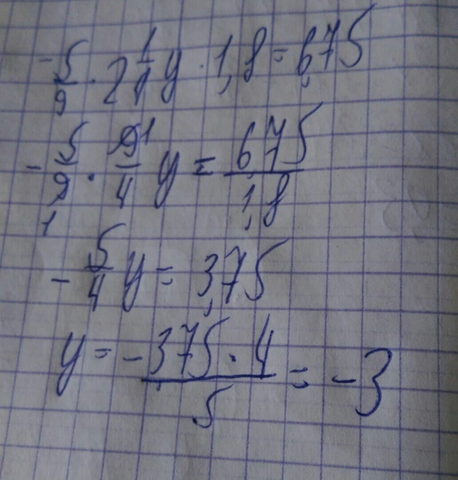 -5/9 · 2 1/4 y · 1,8 = 6,75
-5/9 · 9/4 y = 6,75/1,8
1 1
-5/4 y = 3,75
y = - 3,75 · 4 / 5 = -3